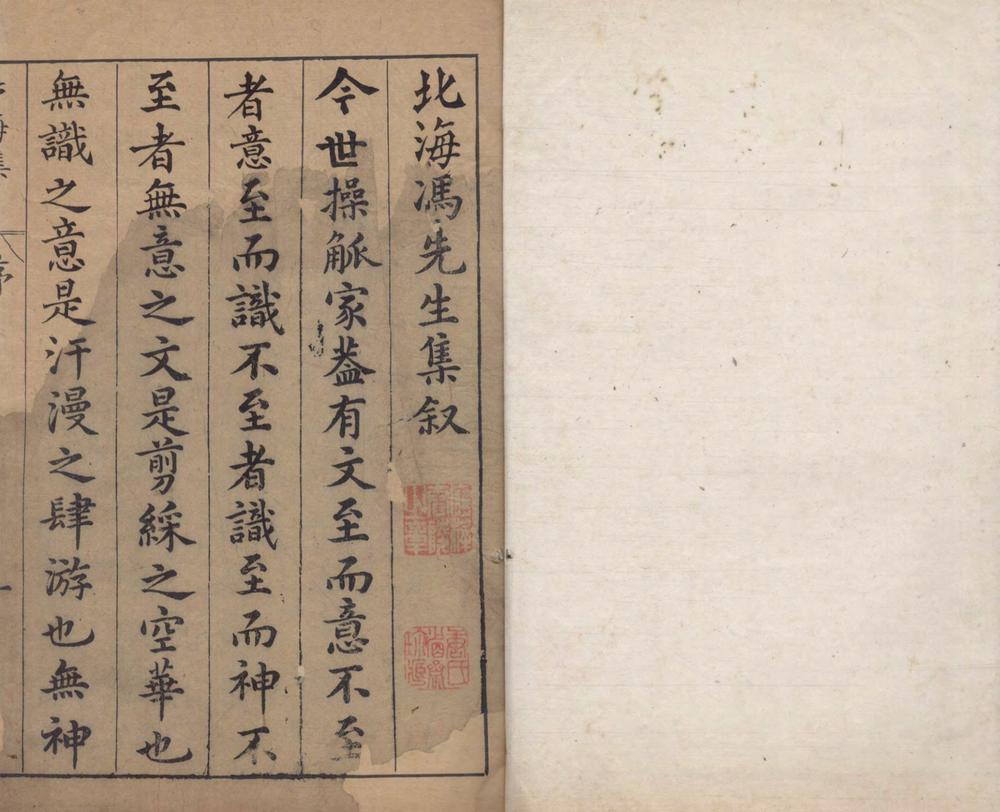 北海馮先生集叙
今世操觚家葢有文至而意不至
者意至而識不至者識至而神不
至者無意之文是剪綵之空華也
無識之意是汗漫之肆游也無神
海集 序 一